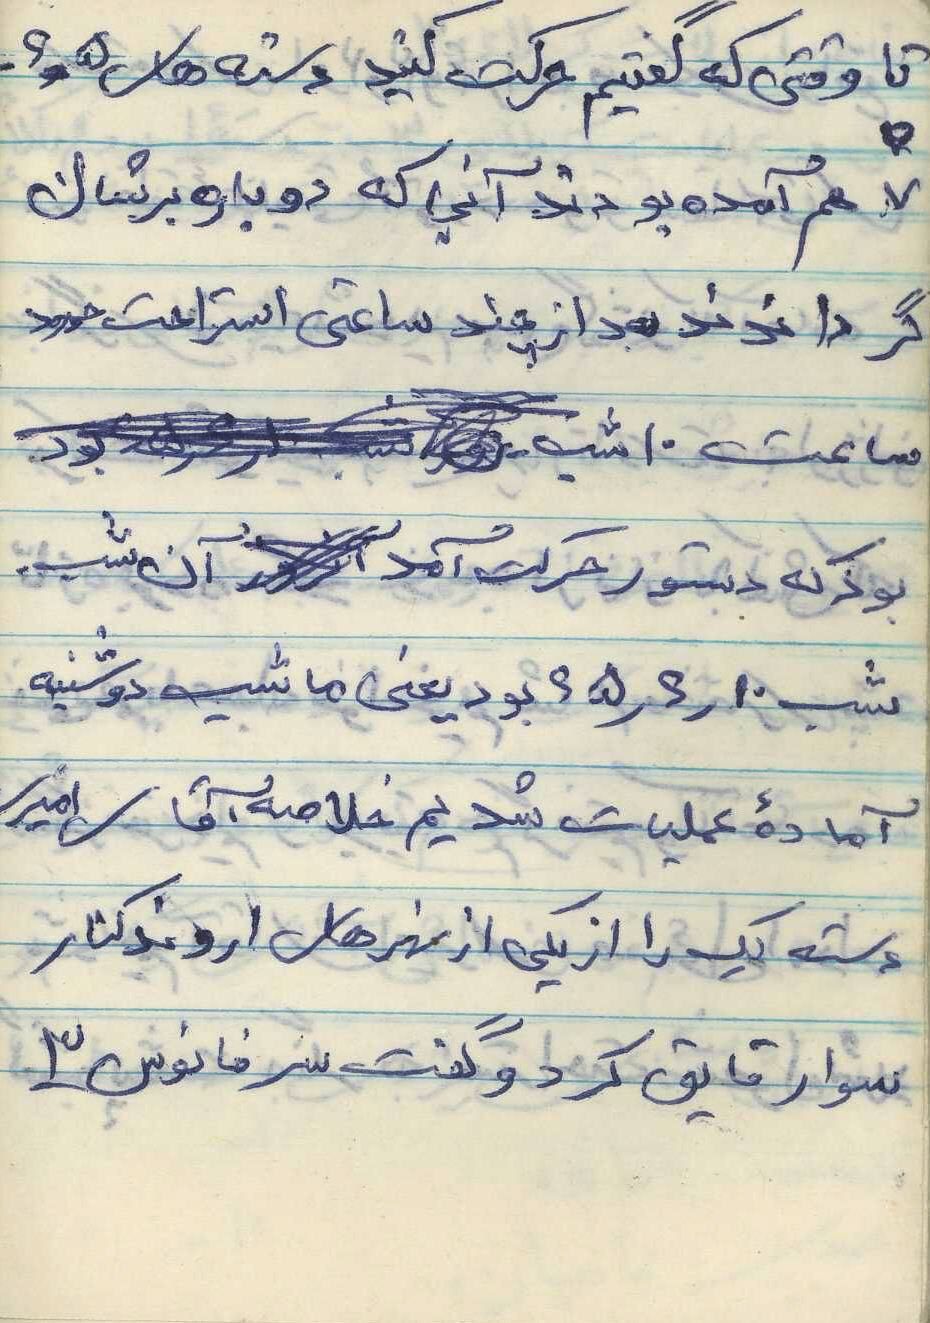 تا وقتی که گفتیم حرکت کنید دسته های ۵ و ۶ و
۷ هم آمده بودند آنی که دوباره برشان
گرداندند بعد از چند ساعتی استراحت حدود
ساعت ۱۰ شب
بود که دستور حرکت آمد آن شب
شب ۱۰ ر ۶ ر ۶۵ بود یعنی ما شب دوشنبه
آمادهٔ عملیات شدیم خلاصه آقای امیری
دسته یک را از یکی از نهرهای اروندکنار
سوار قایق کرد و گفت سر فانوس ۳